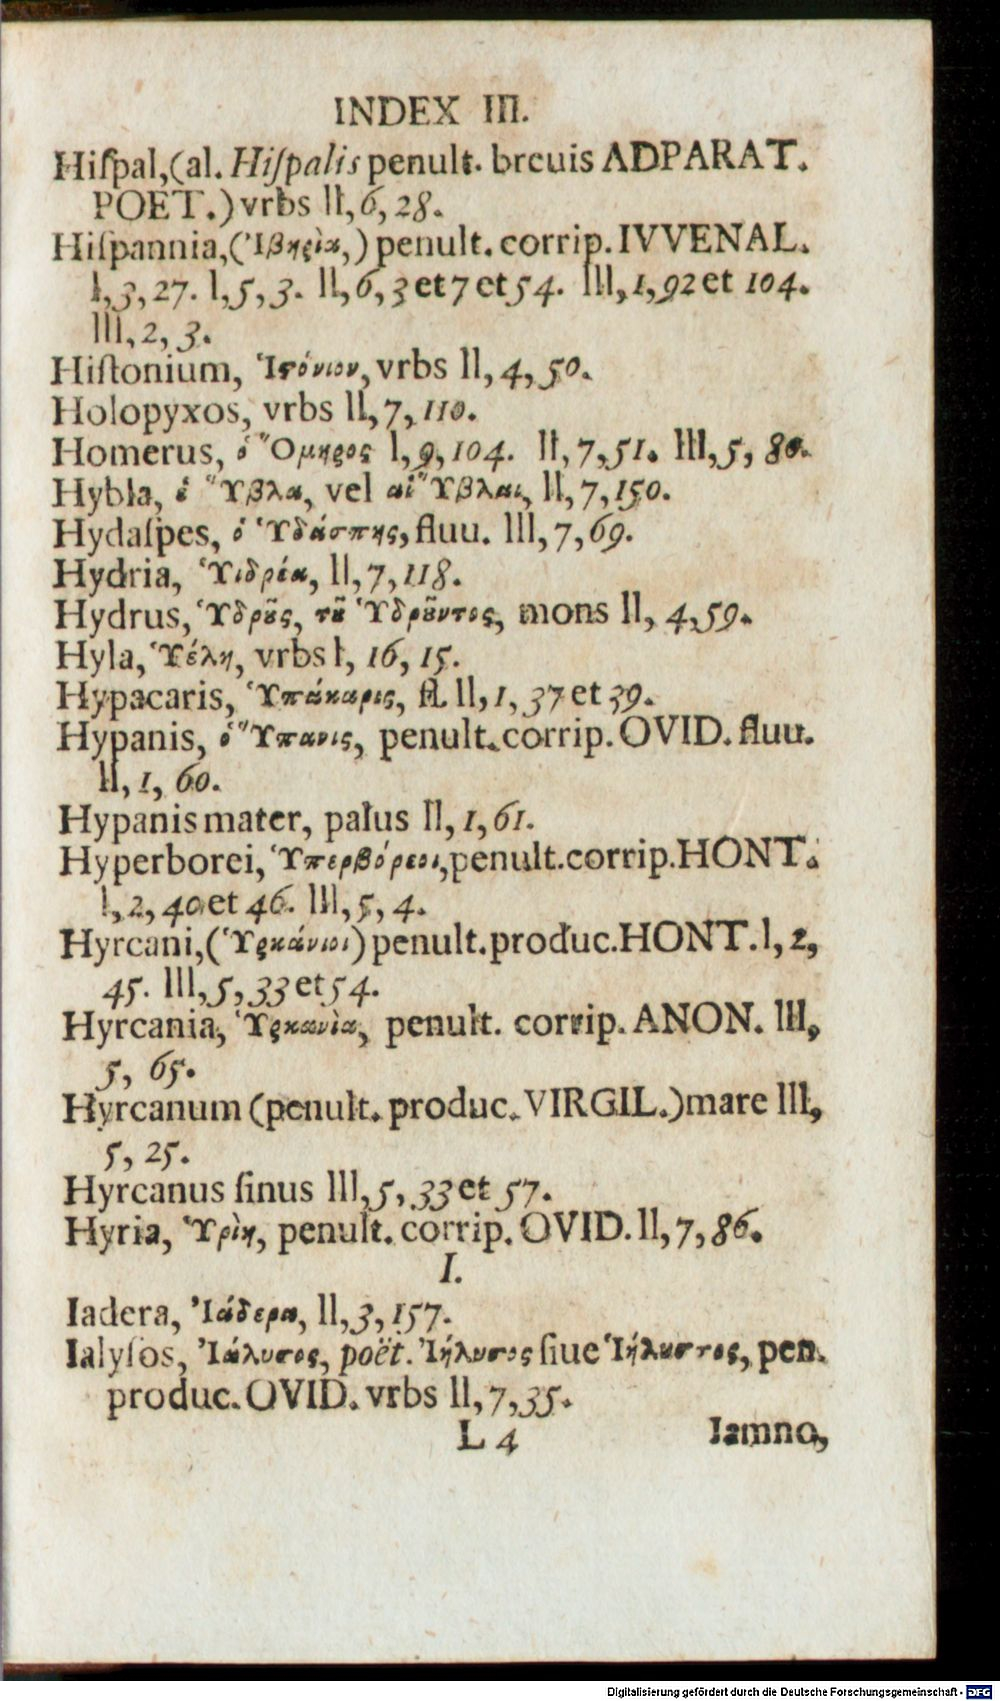 INDEX III.
Hiſpal,(al. Hiſpalis penult. breuis ADPARAT.
POET.) vrbs II, 6, 28.
Hiſpannia,(Ἰβηρὶα,) penult. corrip. IVVENAL.
I, 3, 27. I, 5, 3. II, 6, 3 et 7 et 54. III, 1, 92 et 104.
III, 2, 3.
Hiſtonium, Ἱϛόνιον, vrbs II, 4, 50.
Holopyxos, vrbs II, 7, 110.
Homerus, ὁ Ὅμηρος I, 9, 104. II, 7, 51. III, 5, 80.
Hybla, ἡ Ὕβλα, vel αἱ Ὕβλαι, II, 7, 150.
Hydaſpes, ὁ Ὑδάσπης, fluu. III, 7, 69.
Hydria, Ὑιδρέα, II, 7, 118.
Hydrus, Ὑδρȣ͂ς, τȣ͂ Ὑδρȣ͂ντος, mons II, 4, 59.
Hyla, Ὑέλη, vrbs I, 16, 15.
Hypacaris, Ὑπάκαρις, fl. II, 1, 37 et 39.
Hypanis, ὁ Ὕπανις, penult. corrip. OVID. fluu.
II, 1, 60.
Hypanis mater, palus II, 1, 61.
Hyperborei, Ὑπερβόρεοι, penult. corrip. HONT.
I, 2, 40 et 46. III, 5, 4.
Hyrcani, (Ὑρκάνιοι) penult. produc. HONT. I, 2,
45. III, 5, 33 et 54.
Hyrcania, Ὑρκανὶα, penult. corrip. ANON. III,
5, 65.
Hyrcanum (penult. produc. VIRGIL.) mare III,
5, 25.
Hyrcanus ſinus III, 5, 33 et 57.
Hyria, Ὑρὶη, penult. corrip. OVID. II, 7, 86.
I.
Iadera, Ἰάδερα, II, 3, 157.
Ialyſos, Ἰάλυσος, poët. Ἰήλυσος ſiue Ἰήλυσσος, pen.
produc. OVID. vrbs II, 7, 35.
L 4 Iamno,
Digitalisierung gefördert durch die Deutsche Forschungsgemeinschaft - DFG